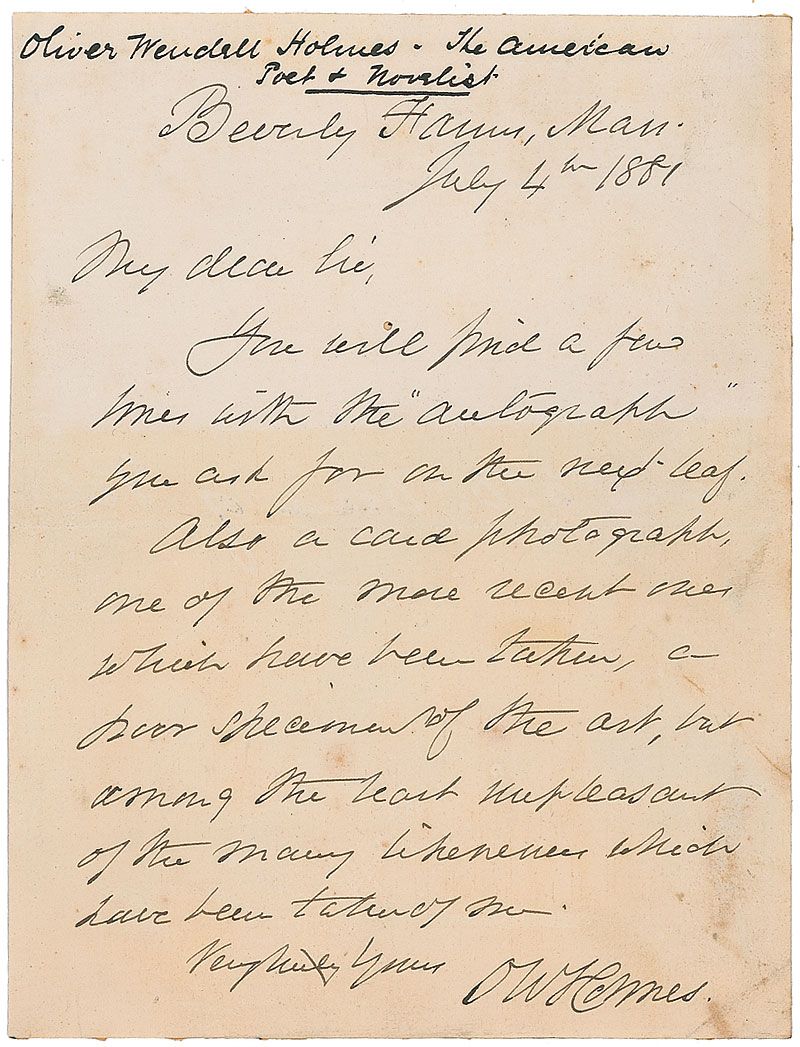 Oliver Wendell Holmes - The American
Poet & Novelist
Beverly Farms, Mass.
July 4th 1881
My dear Sir,
You will find a few
lines with the "autograph"
you ask for on the next leaf.
Also a card photograph,
one of the more recent ones
which have been taken, a
poor specimen of the art, but
among the least unpleasant
of the many likenesses which
have been taken of me.
Very truly Yours
O W Holmes.